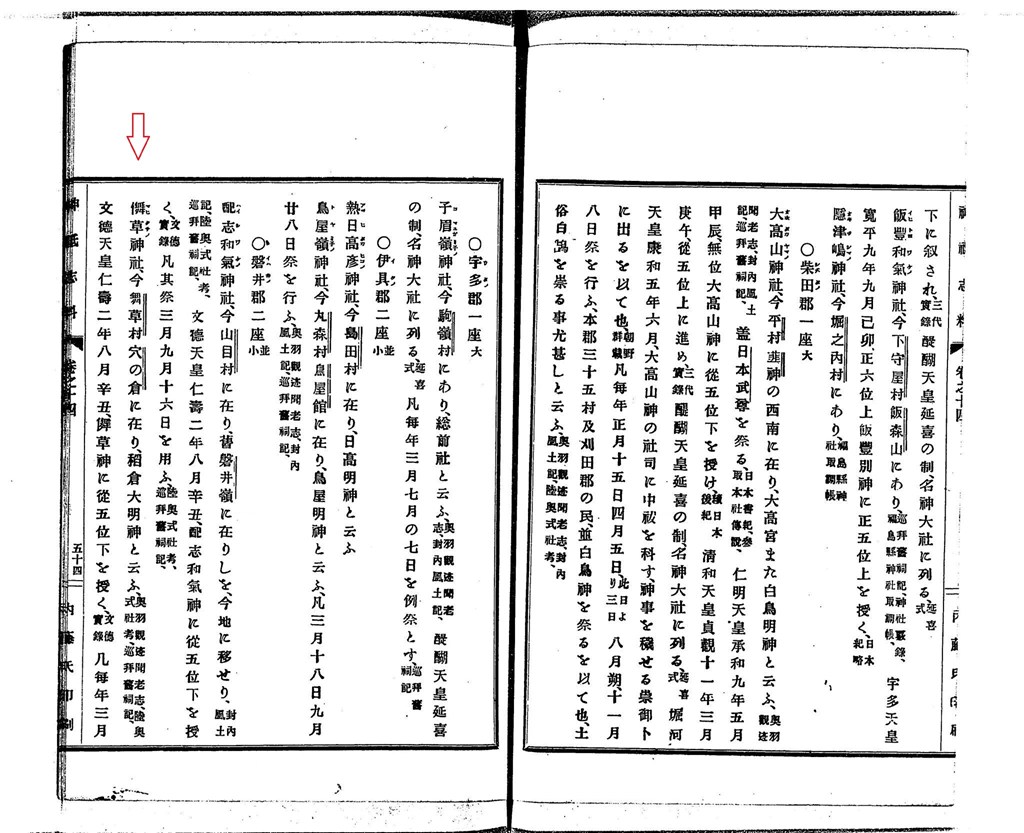 下に叙され、三代實錄醍醐天皇延喜の制、名神大社に列る、延喜式
飯豐和氣神社、今下守屋村飯森山にあり、巡拜舊祠記、神社覈錄、福島縣神社取調帳、宇多天皇
寬平九年九月己卯、正六位上飯豐別神に正五位上を授く、日本紀略
隱津嶋神社、今堀之内村にあり、福島縣神社取調帳
○柴田郡一座大
大高山神社、今平村韮神の西南に在り、大高宮また白鳥明神と云ふ、奥羽觀迹
聞老志、封内風土記、巡拜舊祠記、蓋日本武尊を祭る、日本書紀、參取本社傳說、仁明天皇承和九年五月
甲辰、無位大高山神に從五位下を授け、續日本後紀清和天皇貞觀十一年三月
庚午、從五位上に進め、三代實錄醍醐天皇延喜の制、名神大社に列る、延喜式堀河
天皇康和五年六月、大高山神の社司に中祓を科す、神事を穢せる祟御卜
に出るを以て也、朝野群載凡每年正月十五日四月五日、此日より三日八月朔、十一月
八日祭を行ふ、本郡三十五村及刈田郡の民、並白鳥神を祭るを以て也、土
俗白鵠を崇る事尤甚しと云ふ、奥羽觀迹聞老志、封内風土記、陸奥式社考、
○宇多郡一座大
子眉嶺神社、今駒嶺村にあり、総前社と云ふ、奥羽觀迹聞老志、封内風土記、醍醐天皇延喜
の制、名神大社に列る、延喜式凡每年三月七月の七日を例祭とす、巡拜舊祠記
○伊具郡二座並小
熱日高彥神社、今島田村に在り、日高明神と云ふ
鳥屋嶺神社、今丸森村鳥屋館に在り、鳥屋明神と云ふ、凡三月十八日九月
廿八日祭を行ふ、奥羽觀迹聞老志、封内風土記、巡拜舊祠記、
○磐井郡二座並小
配志和氣神社、今山目村に在り、舊磐井嶺に在りしを、今地に移せり、封内風土
記、陸奥式社考、巡拜舊祠記、文德天皇仁壽二年八月辛丑、配志和氣神に從五位下を授
く、文德實錄凡其祭三月九月十六日を用ふ、陸奥式社考、巡拜舊祠記、
儛草神社、今舞草村穴の倉に在り、稻倉大明神と云ふ、奥羽觀迹聞老志、陸奥式社考、巡拜舊祠記、
文德天皇仁壽二年八月辛丑、儛草神に從五位下を授く、文德實錄凡每年三月
五十四